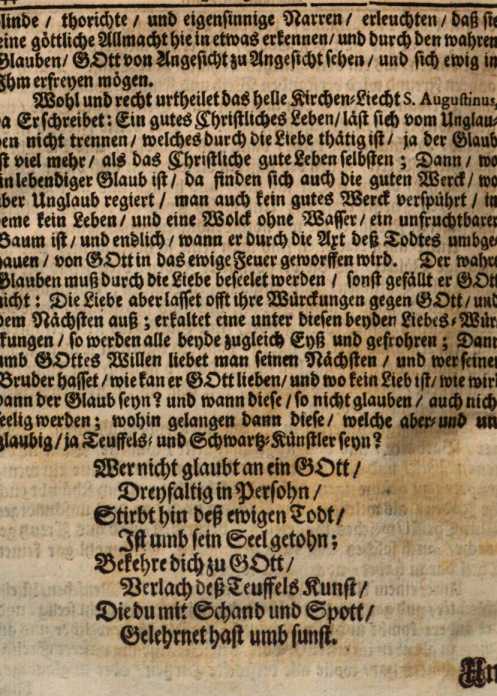 blinde / thorichte / und eigensinnige Narren / erleuchten / daß sie
eine göttliche Allmacht hie in etwas erkennen / und durch den wahren
Glauben / GOtt von Angesicht zu Angesicht sehen / und sich ewig in
Ihm erfreyen mögen.
Wohl und recht urtheilet das helle Kirchen-Liecht S. Augustinus,
da Er schreibet: Ein gutes Christliches Leben / läst sich vom Unglau-
ben nicht trennen / welches durch die Liebe thätig ist / ja der Glaub
ist viel mehr / als das Christliche gute Leben selbsten ; Dann / wo
ein lebendiger Glaub ist / da finden sich auch die guten Werck / wo
aber Unglaub regiert / man auch kein gutes Werck verspührt / in
deme kein Leben / und eine Wolck ohne Wasser / ein unfruchtbarer
Baum ist / und endlich / wann er durch die Axt deß Todtes umbge-
hauen / von GOtt in das ewige Feuer geworffen wird. Der wahre
Glauben muß durch die Liebe beseelet werden / sonst gefällt er GOtt
nicht : Die Liebe aber lasset offt ihre Würckungen gegen GOtt / und
dem Nächsten auß ; erkaltet eine unter diesen beyden Liebes-Wür-
ckungen / so werden alle beyde zugleich Eyß und gefrohren ; Dann
umb GOttes Willen liebet man seinen Nächsten / und wer seinen
Bruder hasset / wie kan er GOtt lieben / und wo kein Lieb ist / wie wird
dann der Glaub seyn? und wann diese / so nicht glauben / auch nicht
seelig werden ; wohin gelangen dann diese / welche aber- und un-
glaubig / ja Teuffels- und Schwartz-Künstler seyn?
Wer nicht glaubt an ein GOtt /
Dreyfaltig in Persohn /
Stirbt hin deß ewigen Todt /
Ist umb sein Seel getohn ;
Bekehre dich zu GOtt /
Verlach deß Teuffels Kunst /
Die du mit Schand und Spott /
Gelehrnet hast umb sunst.